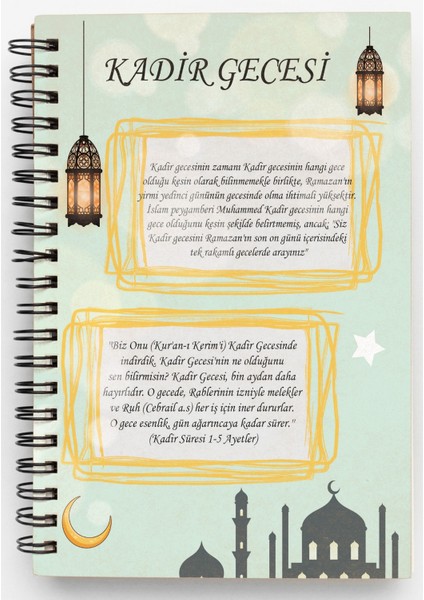 KADİR GECESİ
Kadir gecesinin zamanı Kadir gecesinin hangi gece
olduğu kesin olarak bilinmemekle birlikte, Ramazan'ın
yirmi yedinci gününün gecesinde olma ihtimali yüksektir.
İslam peygamberi Muhammed Kadir gecesinin hangi
gece olduğunu kesin şekilde belirtmemiş, ancak; "Siz
Kadir gecesini Ramazan'ın son on günü içerisindeki
tek rakamlı gecelerde arayınız"
"Biz Onu (Kur'an-ı Kerim'i) Kadir Gecesinde
indirdik. Kadir Gecesi'nin ne olduğunu
sen bilirmisin? Kadir Gecesi, bin aydan daha
hayırlıdır. O gecede, Rablerinin izniyle melekler
ve Ruh (Cebrail a.s) her iş için iner dururlar.
O gece esenlik, gün ağarıncaya kadar sürer."
(Kadir Süresi 1-5 Ayetler)